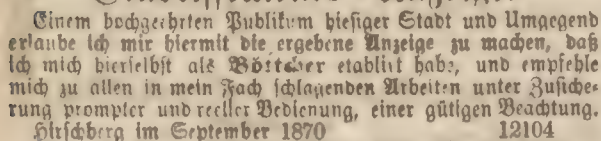 Einem hochgeehrten Publikum hiesiger Stadt und Umgegend
erlaube ich mir hiermit die ergebene Anzeige zu machen, daß
ich mich hierselbst als Böttcher etablirt habe, und empfehle
mich zu allen in mein Fach schlagenden Arbeiten unter Zusiche-
rung prompter und reeller Bedienung, einer gütigen Beachtung.
Hirschberg im September 1870 12104